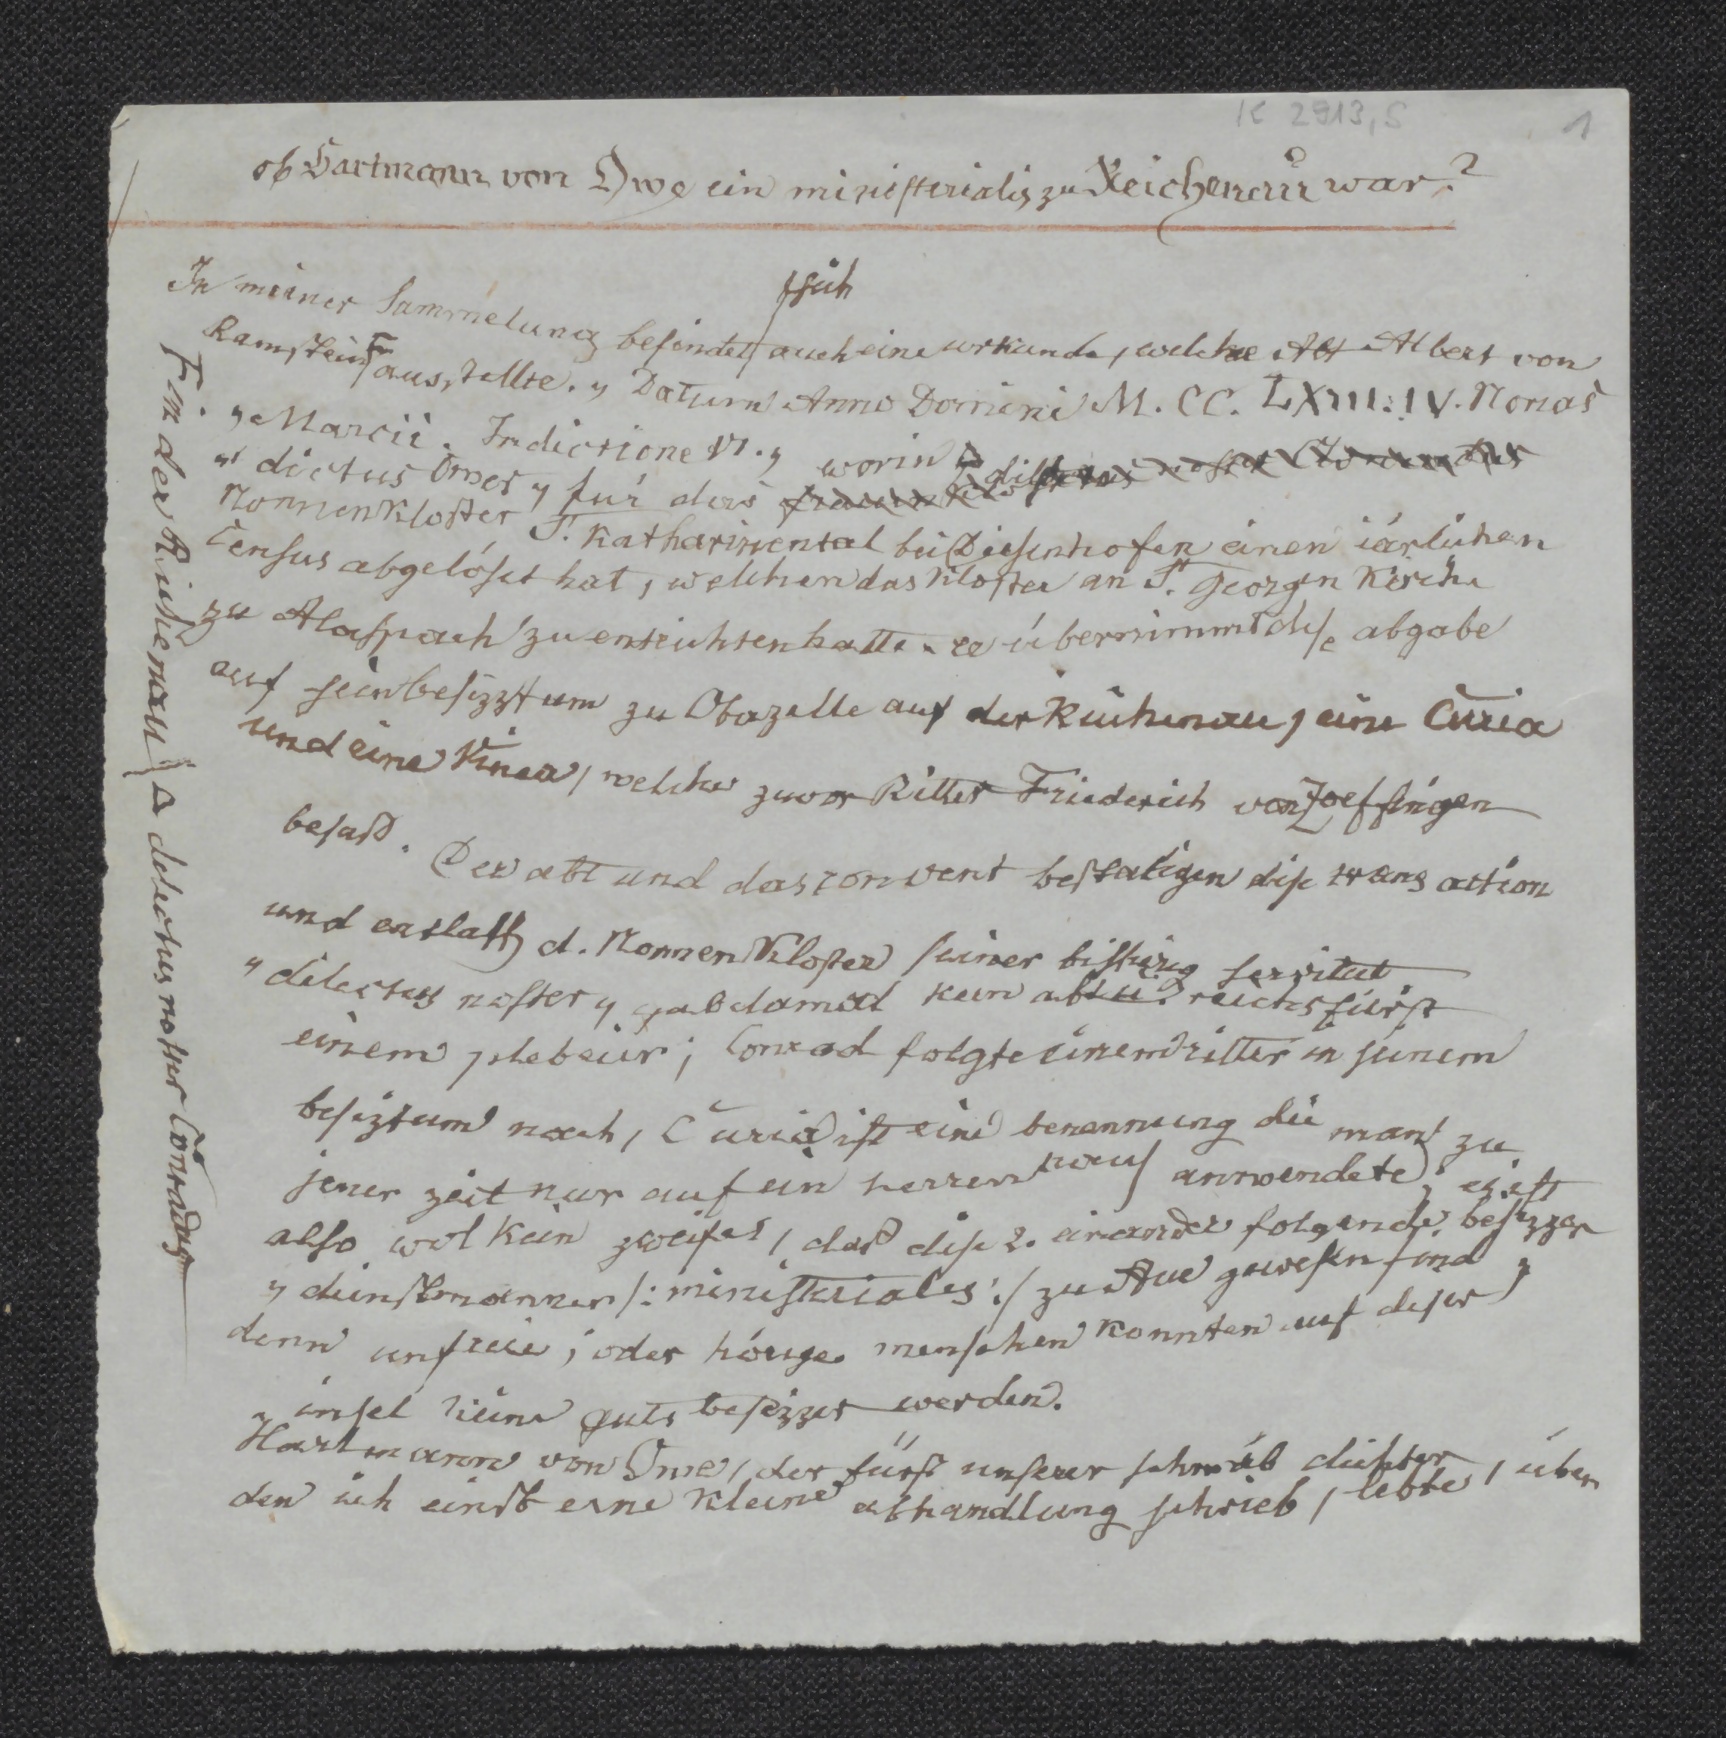 K 2913,5
1
ob Hartmann von Owe ein ministerialis zu Reichenau war?
sich
In meiner Sammelung befindet auch eine urkunde, welche Abt Albert von
Ramstein F ausstellte. „ Datum Anno Domini M. CC. LXIII. IV. Nonas
„ Marcii. Indictione VI. „ worin Δ dilectus noster Conradus
„ dictus Ower „ für das frauenkloster
Nonnenkloster St. Katharinental bei Diesenhofen einen iärlichen
Census abgelöset hat, welchen das Kloster an St. Georgen Kirche
zu Alaspach zu entrichten hatte. er übernimmt dise abgabe
auf sein besizztum zu Obazelle auf der Reichenau, eine Curia
und eine Vinea, welche zuvor Ritter Friederich von Zoeffingen
besaß. Der abt und das convent bestätigen dise transaction
und entlaßt d. Nonnen Kloster seiner bißherig servitut
„ dilectus noster „ gab damal kein abt u. reichsfürst
einem plebeier; Conrad folgte einem ritter in seinem
besiztum nach, Curia ist eine benennung die man zu
jener zeit nur auf ein herren haus anwendete; es ist
also wol kein zweifel, daß dise 2. einander folgende besizzer
„ dienstmänner /: ministeriales :/ zu Aue gewesen sind;
denn unfreie, oder hörige menschen konnten auf diser
insel keine guts besizzer werden.
Hartmann von Owe, der fürst unserer schwäb dichter, über
den ich einst eine kleine abhandlung schrieb, lebte,
F in der Reichenau Δ dilectus noster Conradus